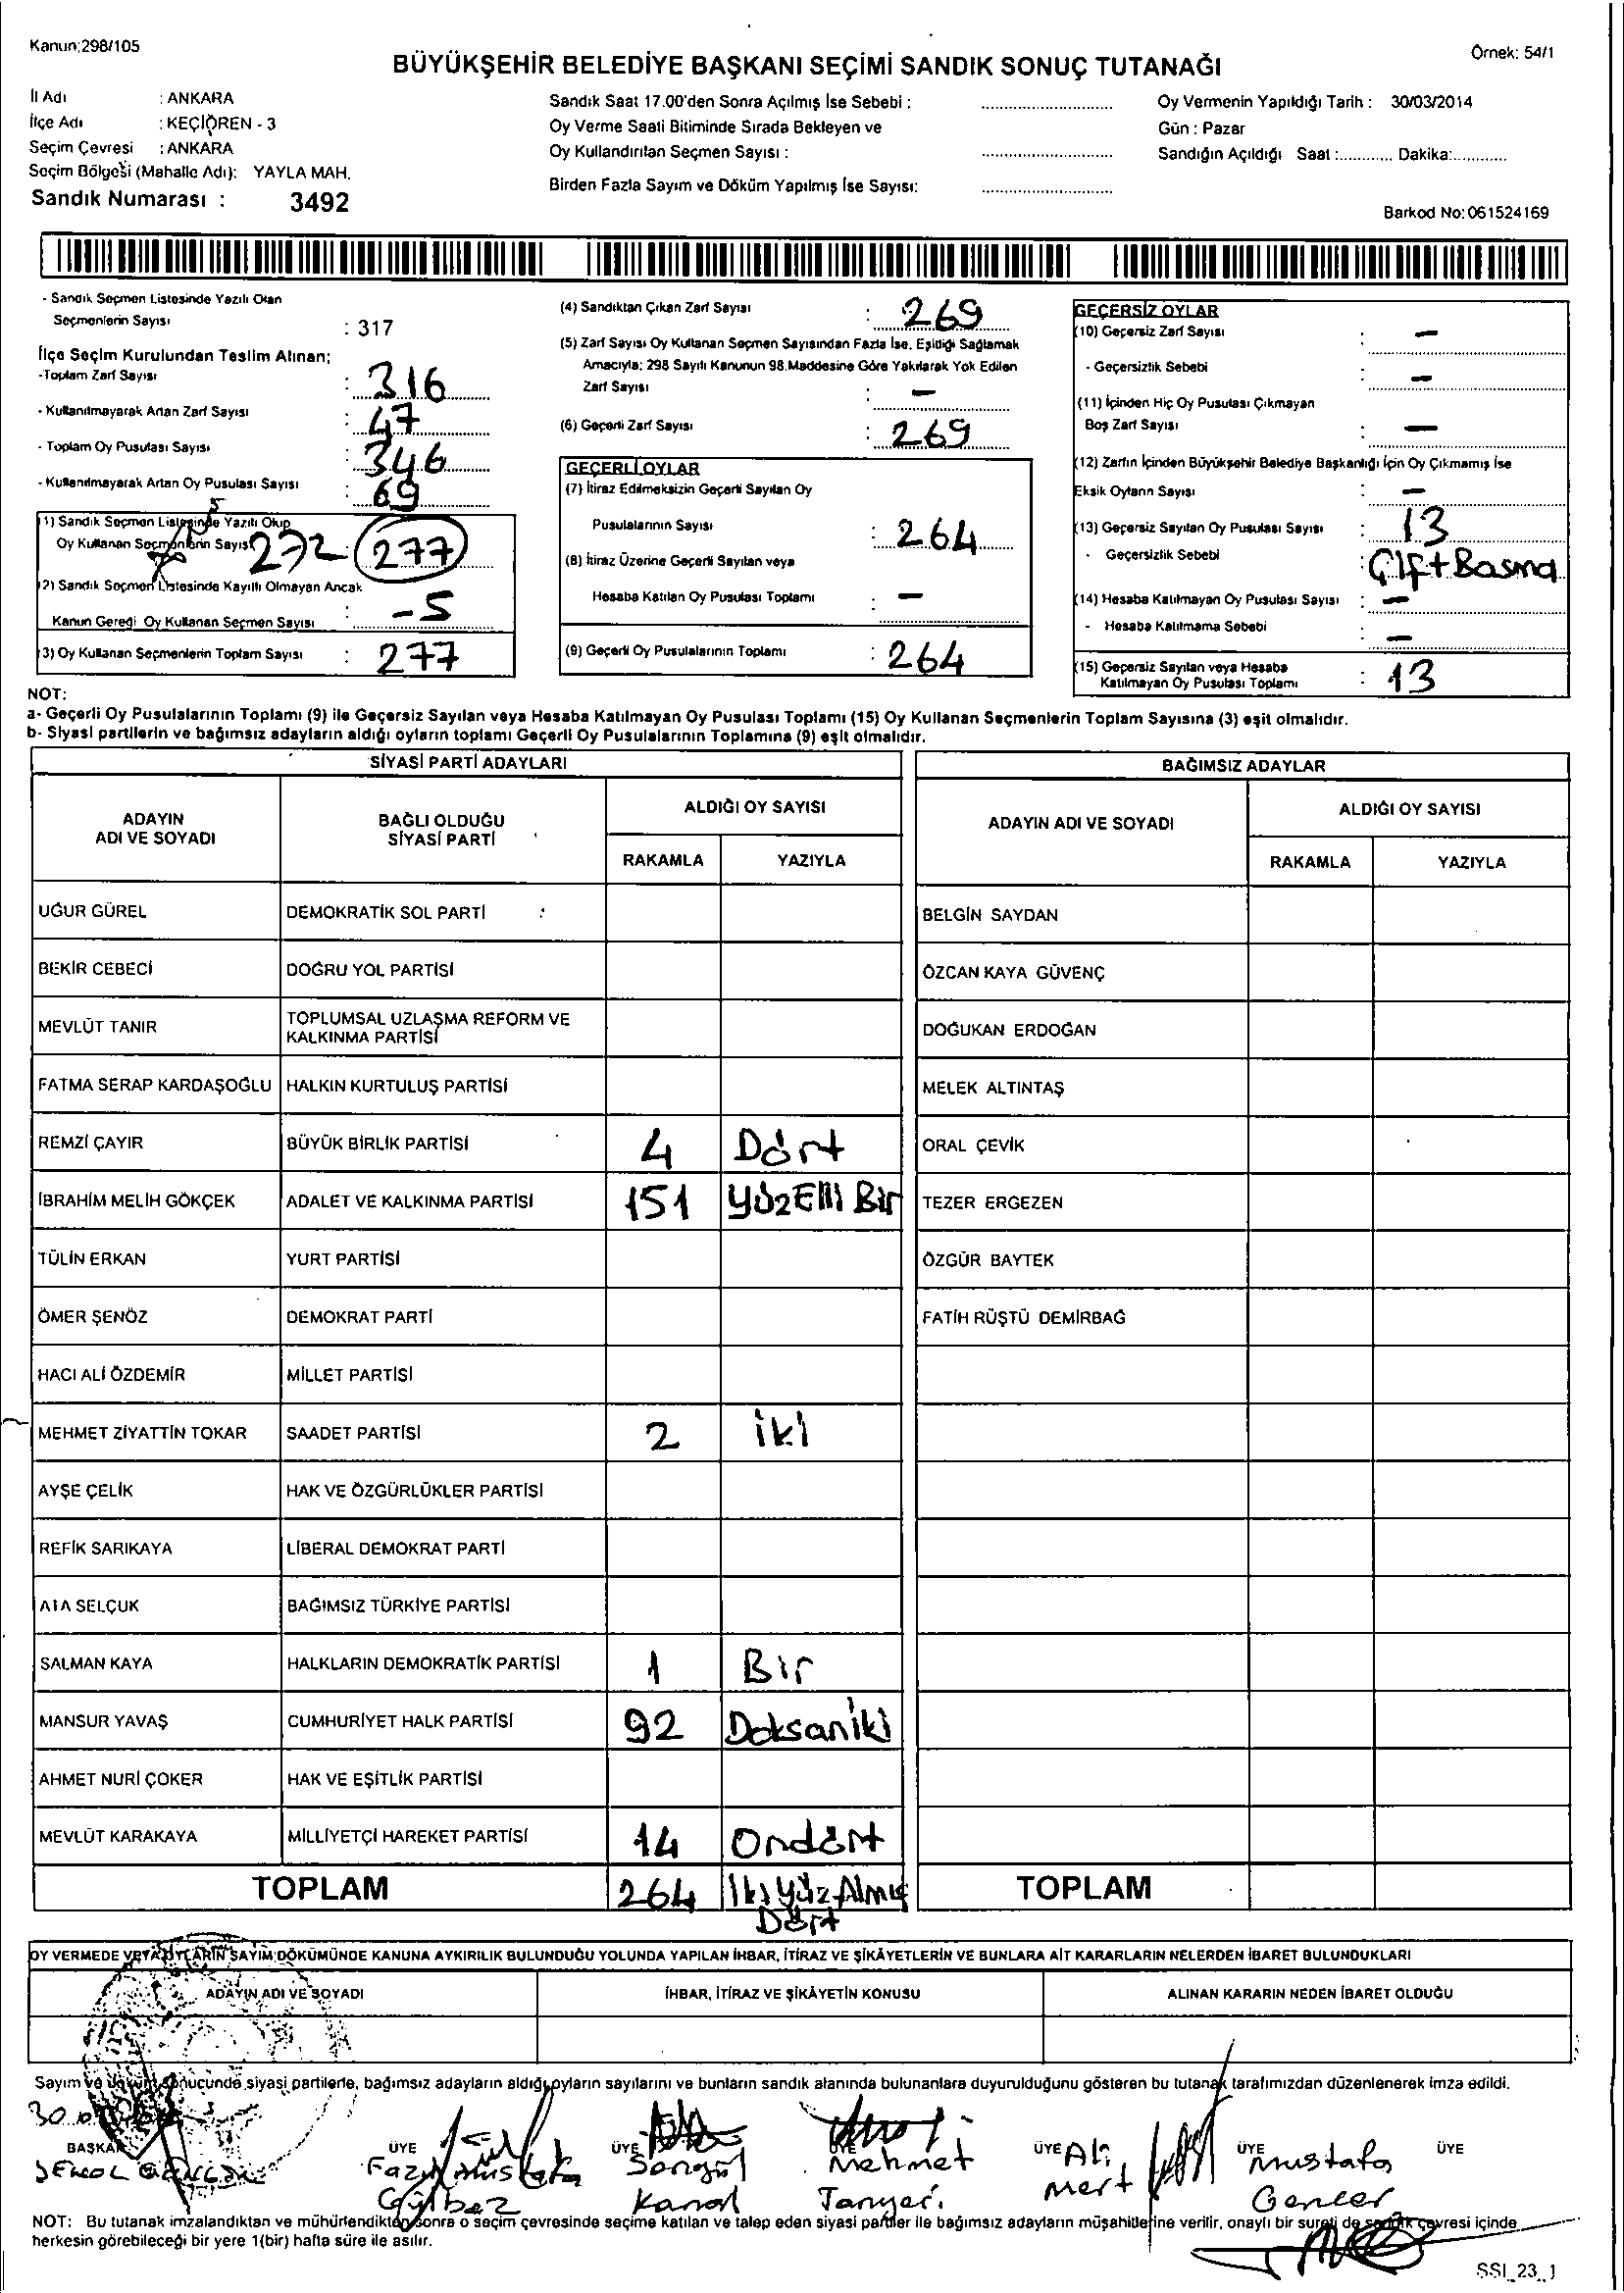 Kanun;298/105
Örnek: 54/1
BÜYÜKŞEHİR BELEDİYE BAŞKANI SEÇİMİ SANDIK SONUÇ TUTANAĞI
İl Adı : ANKARA
İlçe Adı : KEÇİÖREN - 3
Seçim Çevresi : ANKARA
Seçim Bölgesi (Mahalle Adı): YAYLA MAH.
Sandık Numarası : 3492
Sandık Saat 17.00'den Sonra Açılmış İse Sebebi :
Oy Verme Saati Bitiminde Sırada Bekleyen ve
Oy Kullandırılan Seçmen Sayısı :
Birden Fazla Sayım ve Döküm Yapılmış İse Sayısı:
Oy Vermenin Yapıldığı Tarih : 30/03/2014
Gün : Pazar
Sandığın Açıldığı Saat :............ Dakika:............
Barkod No: 061524169
- Sandık Seçmen Listesinde Yazılı Olan
Seçmenlerin Sayısı : 317
İlçe Seçim Kurulundan Teslim Alınan;
-Toplam Zarf Sayısı : 316
- Kullanılmayarak Artan Zarf Sayısı : 47
- Toplam Oy Pusulası Sayısı : 346
- Kullanılmayarak Artan Oy Pusulası Sayısı : 69
(1) Sandık Seçmen Listesinde Yazılı Olup
Oy Kullanan Seçmenlerin Sayısı 272 277
(2) Sandık Seçmen Listesinde Kayıtlı Olmayan Ancak
Kanun Gereği Oy Kullanan Seçmen Sayısı : -5
(3) Oy Kullanan Seçmenlerin Toplam Sayısı : 277
(4) Sandıktan Çıkan Zarf Sayısı : 269
(5) Zarf Sayısı Oy Kullanan Seçmen Sayısından Fazla İse, Eşitliği Sağlamak
Amacıyla; 298 Sayılı Kanunun 98.Maddesine Göre Yakılarak Yok Edilen
Zarf Sayısı : -
(6) Geçerli Zarf Sayısı : 269
GEÇERLİ OYLAR
(7) İtiraz Edilmeksizin Geçerli Sayılan Oy
Pusulalarının Sayısı : 264
(8) İtiraz Üzerine Geçerli Sayılan veya
Hesaba Katılan Oy Pusulası Toplamı : -
(9) Geçerli Oy Pusulalarının Toplamı : 264
GEÇERSİZ OYLAR
(10) Geçersiz Zarf Sayısı : -
- Geçersizlik Sebebi : -
(11) İçinden Hiç Oy Pusulası Çıkmayan
Boş Zarf Sayısı : -
(12) Zarfın İçinden Büyükşehir Belediye Başkanlığı İçin Oy Çıkmamış İse
Eksik Oyların Sayısı : -
(13) Geçersiz Sayılan Oy Pusulası Sayısı : 13
- Geçersizlik Sebebi : Çift Basma
(14) Hesaba Katılmayan Oy Pusulası Sayısı : -
- Hesaba Katılmama Sebebi : -
(15) Geçersiz Sayılan veya Hesaba
Katılmayan Oy Pusulası Toplamı : 13
NOT:
a- Geçerli Oy Pusulalarının Toplamı (9) ile Geçersiz Sayılan veya Hesaba Katılmayan Oy Pusulası Toplamı (15) Oy Kullanan Seçmenlerin Toplam Sayısına (3) eşit olmalıdır.
b- Siyasi partilerin ve bağımsız adayların aldığı oyların toplamı Geçerli Oy Pusulalarının Toplamına (9) eşit olmalıdır.
SİYASİ PARTİ ADAYLARI
BAĞIMSIZ ADAYLAR
ADAYIN
ADI VE SOYADI
BAĞLI OLDUĞU
SİYASİ PARTİ
ALDIĞI OY SAYISI
RAKAMLA YAZIYLA
ADAYIN ADI VE SOYADI
ALDIĞI OY SAYISI
RAKAMLA YAZIYLA
UĞUR GÜREL DEMOKRATİK SOL PARTİ BELGİN SAYDAN
BEKİR CEBECİ DOĞRU YOL PARTİSİ ÖZCAN KAYA GÜVENÇ
MEVLÜT TANIR TOPLUMSAL UZLAŞMA REFORM VE
KALKINMA PARTİSİ DOĞUKAN ERDOĞAN
FATMA SERAP KARDAŞOĞLU HALKIN KURTULUŞ PARTİSİ MELEK ALTINTAŞ
REMZİ ÇAYIR BÜYÜK BİRLİK PARTİSİ 4 Dört ORAL ÇEVİK
İBRAHİM MELİH GÖKÇEK ADALET VE KALKINMA PARTİSİ 151 yüzElli Bir TEZER ERGEZEN
TÜLİN ERKAN YURT PARTİSİ ÖZGÜR BAYTEK
ÖMER ŞENÖZ DEMOKRAT PARTİ FATİH RÜŞTÜ DEMİRBAĞ
HACI ALİ ÖZDEMİR MİLLET PARTİSİ
MEHMET ZİYATTİN TOKAR SAADET PARTİSİ 2 iki
AYŞE ÇELİK HAK VE ÖZGÜRLÜKLER PARTİSİ
REFİK SARIKAYA LİBERAL DEMOKRAT PARTİ
ATA SELÇUK BAĞIMSIZ TÜRKİYE PARTİSİ
SALMAN KAYA HALKLARIN DEMOKRATİK PARTİSİ 1 Bir
MANSUR YAVAŞ CUMHURİYET HALK PARTİSİ 92 Doksaniki
AHMET NURİ ÇOKER HAK VE EŞİTLİK PARTİSİ
MEVLÜT KARAKAYA MİLLİYETÇİ HAREKET PARTİSİ 14 Ondört
TOPLAM 264 İki yüz Almış
Dört
TOPLAM
OY VERMEDE VEYA OYLARIN SAYIM DÖKÜMÜNDE KANUNA AYKIRILIK BULUNDUĞU YOLUNDA YAPILAN İHBAR, İTİRAZ VE ŞİKÂYETLERİN VE BUNLARA AİT KARARLARIN NELERDEN İBARET BULUNDUKLARI
ADAYIN ADI VE SOYADI İHBAR, İTİRAZ VE ŞİKÂYETİN KONUSU ALINAN KARARIN NEDEN İBARET OLDUĞU
Sayım ve döküm sonucunda siyasi partilerle, bağımsız adayların aldığı oyların sayılarını ve bunların sandık alanında bulunanlara duyurulduğunu gösteren bu tutanak tarafımızdan düzenlenerek imza edildi.
30
BAŞKAN ÜYE ÜYE ÜYE ÜYE ÜYE ÜYE
ŞENOL
Fazıl Mustafa
Gülbez
Songül
Kanal
Mehmet
Tanyeri
Ali
Mert
Mustafa
Gencer
NOT: Bu tutanak imzalandıktan ve mühürlendikten sonra o seçim çevresinde seçime katılan ve talep eden siyasi partiler ile bağımsız adayların müşahitlerine verilir, onaylı bir sureti de sandık çevresi içinde
herkesin görebileceği bir yere 1(bir) hafta süre ile asılır.
SSI_23_1